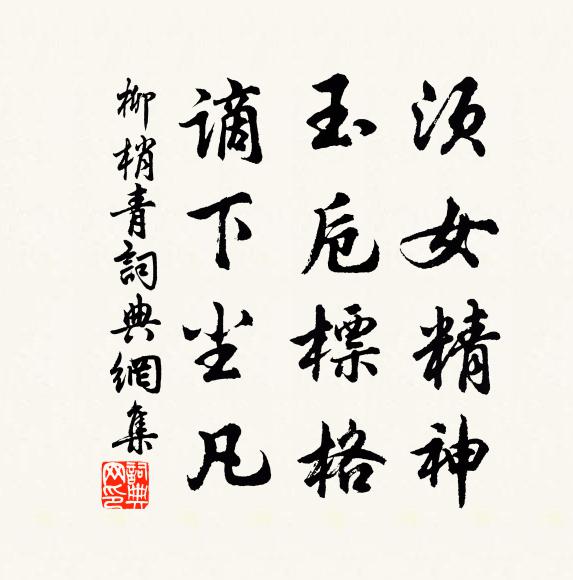 须女精神
玉卮標格
谪下尘凡
柳梢青詞典網集
詞典网印